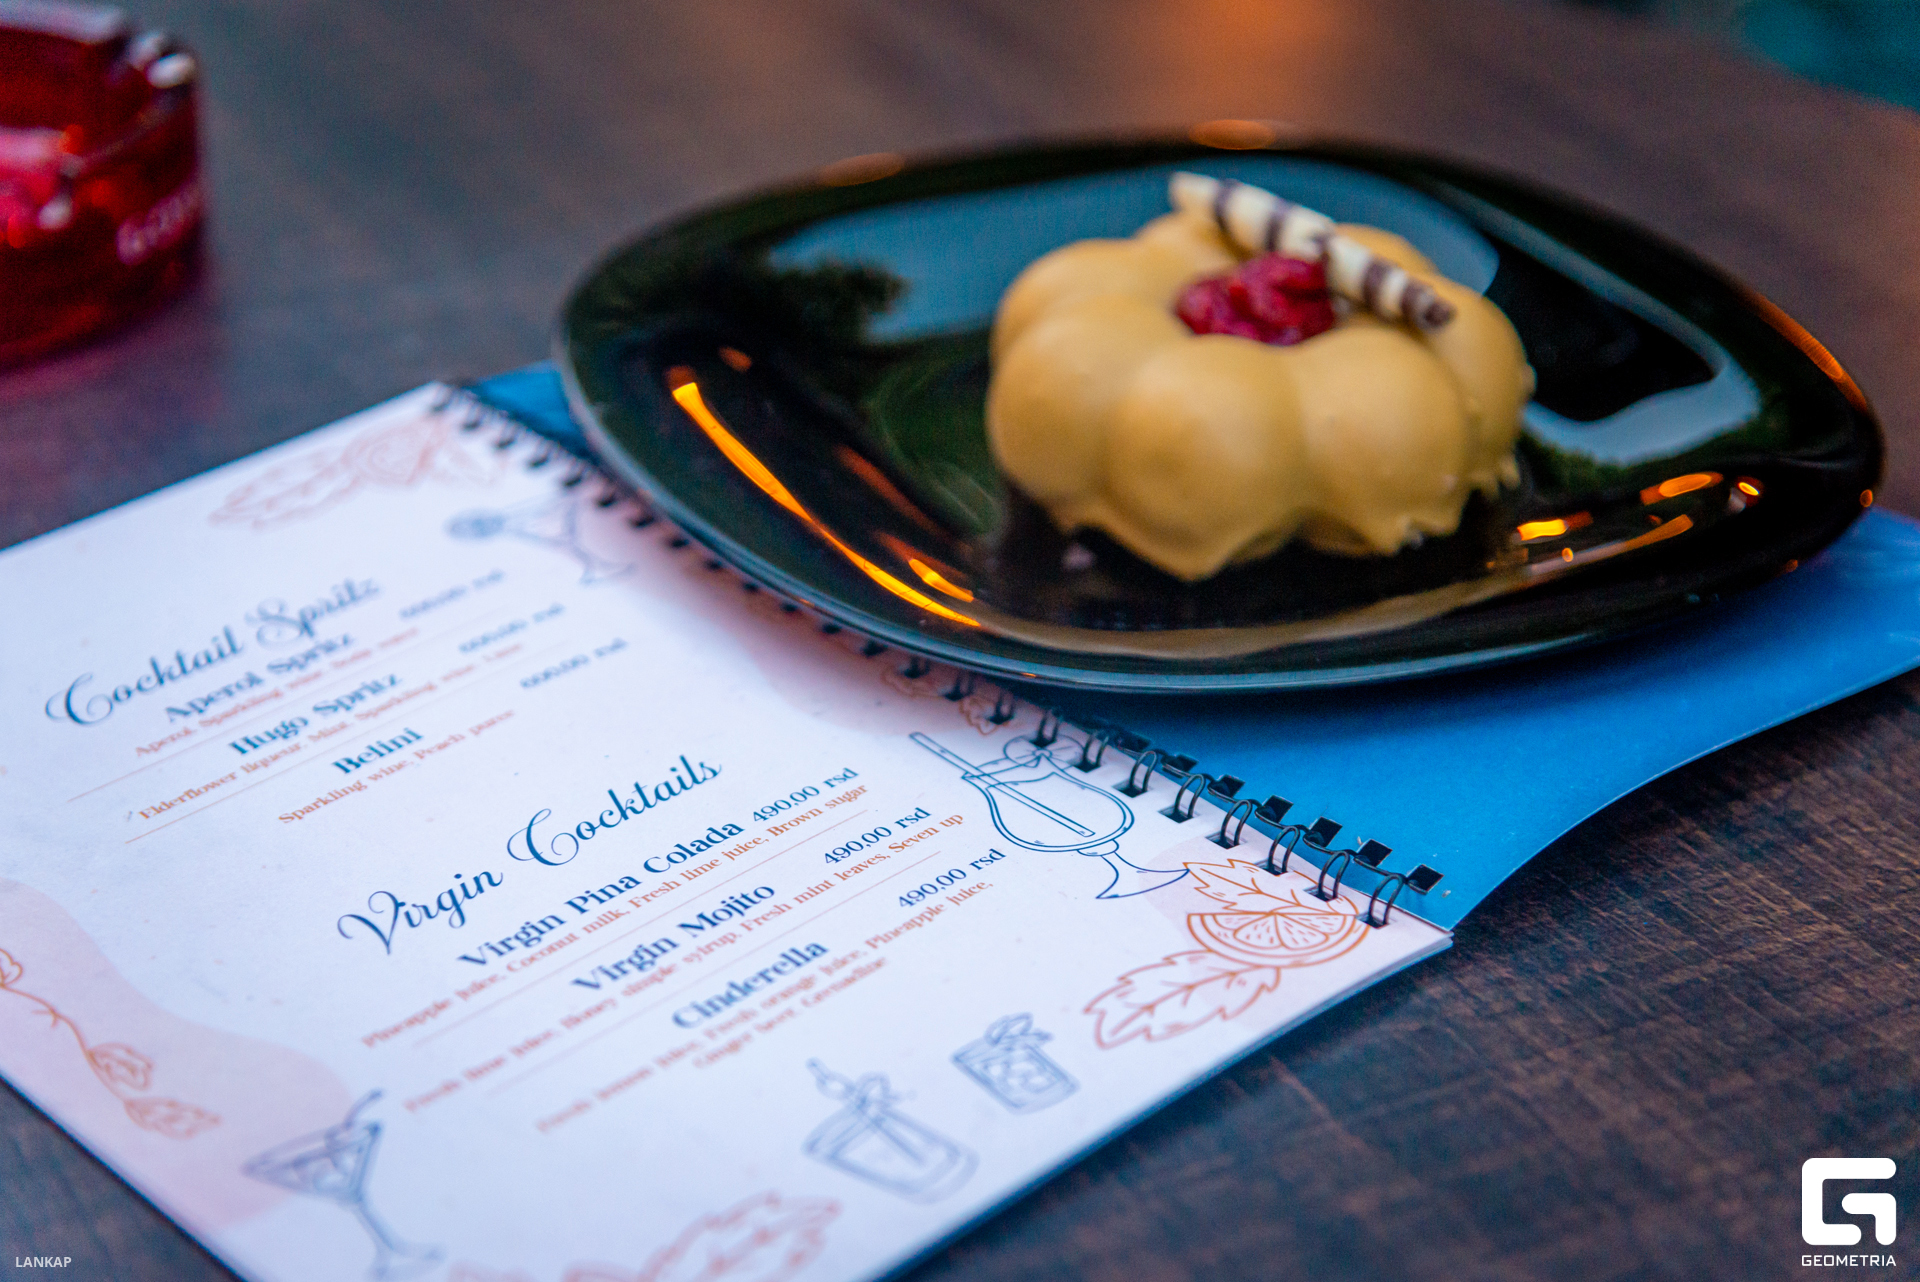 Cocktail Spritz
Aperol Spritz
Aperol, Sparkling wine, Soda water
Hugo Spritz 600,00 rsd
Elderflower liqueur, Mint, Sparkling wine, Lime
Belini 600,00 rsd
Sparkling wine, Peach puree
Virgin Cocktails
Virgin Pina Colada 490,00 rsd
Pineapple juice, Coconut milk, Fresh lime juice, Brown sugar
Virgin Mojito 490,00 rsd
Fresh lime juice, Honey simple syrup, Fresh mint leaves, Seven up
Cinderella 490,00 rsd
Fresh lemon juice, Fresh orange juice, Pineapple juice,
Ginger beer, Grenadine
LANKAP
GEOMETRIA